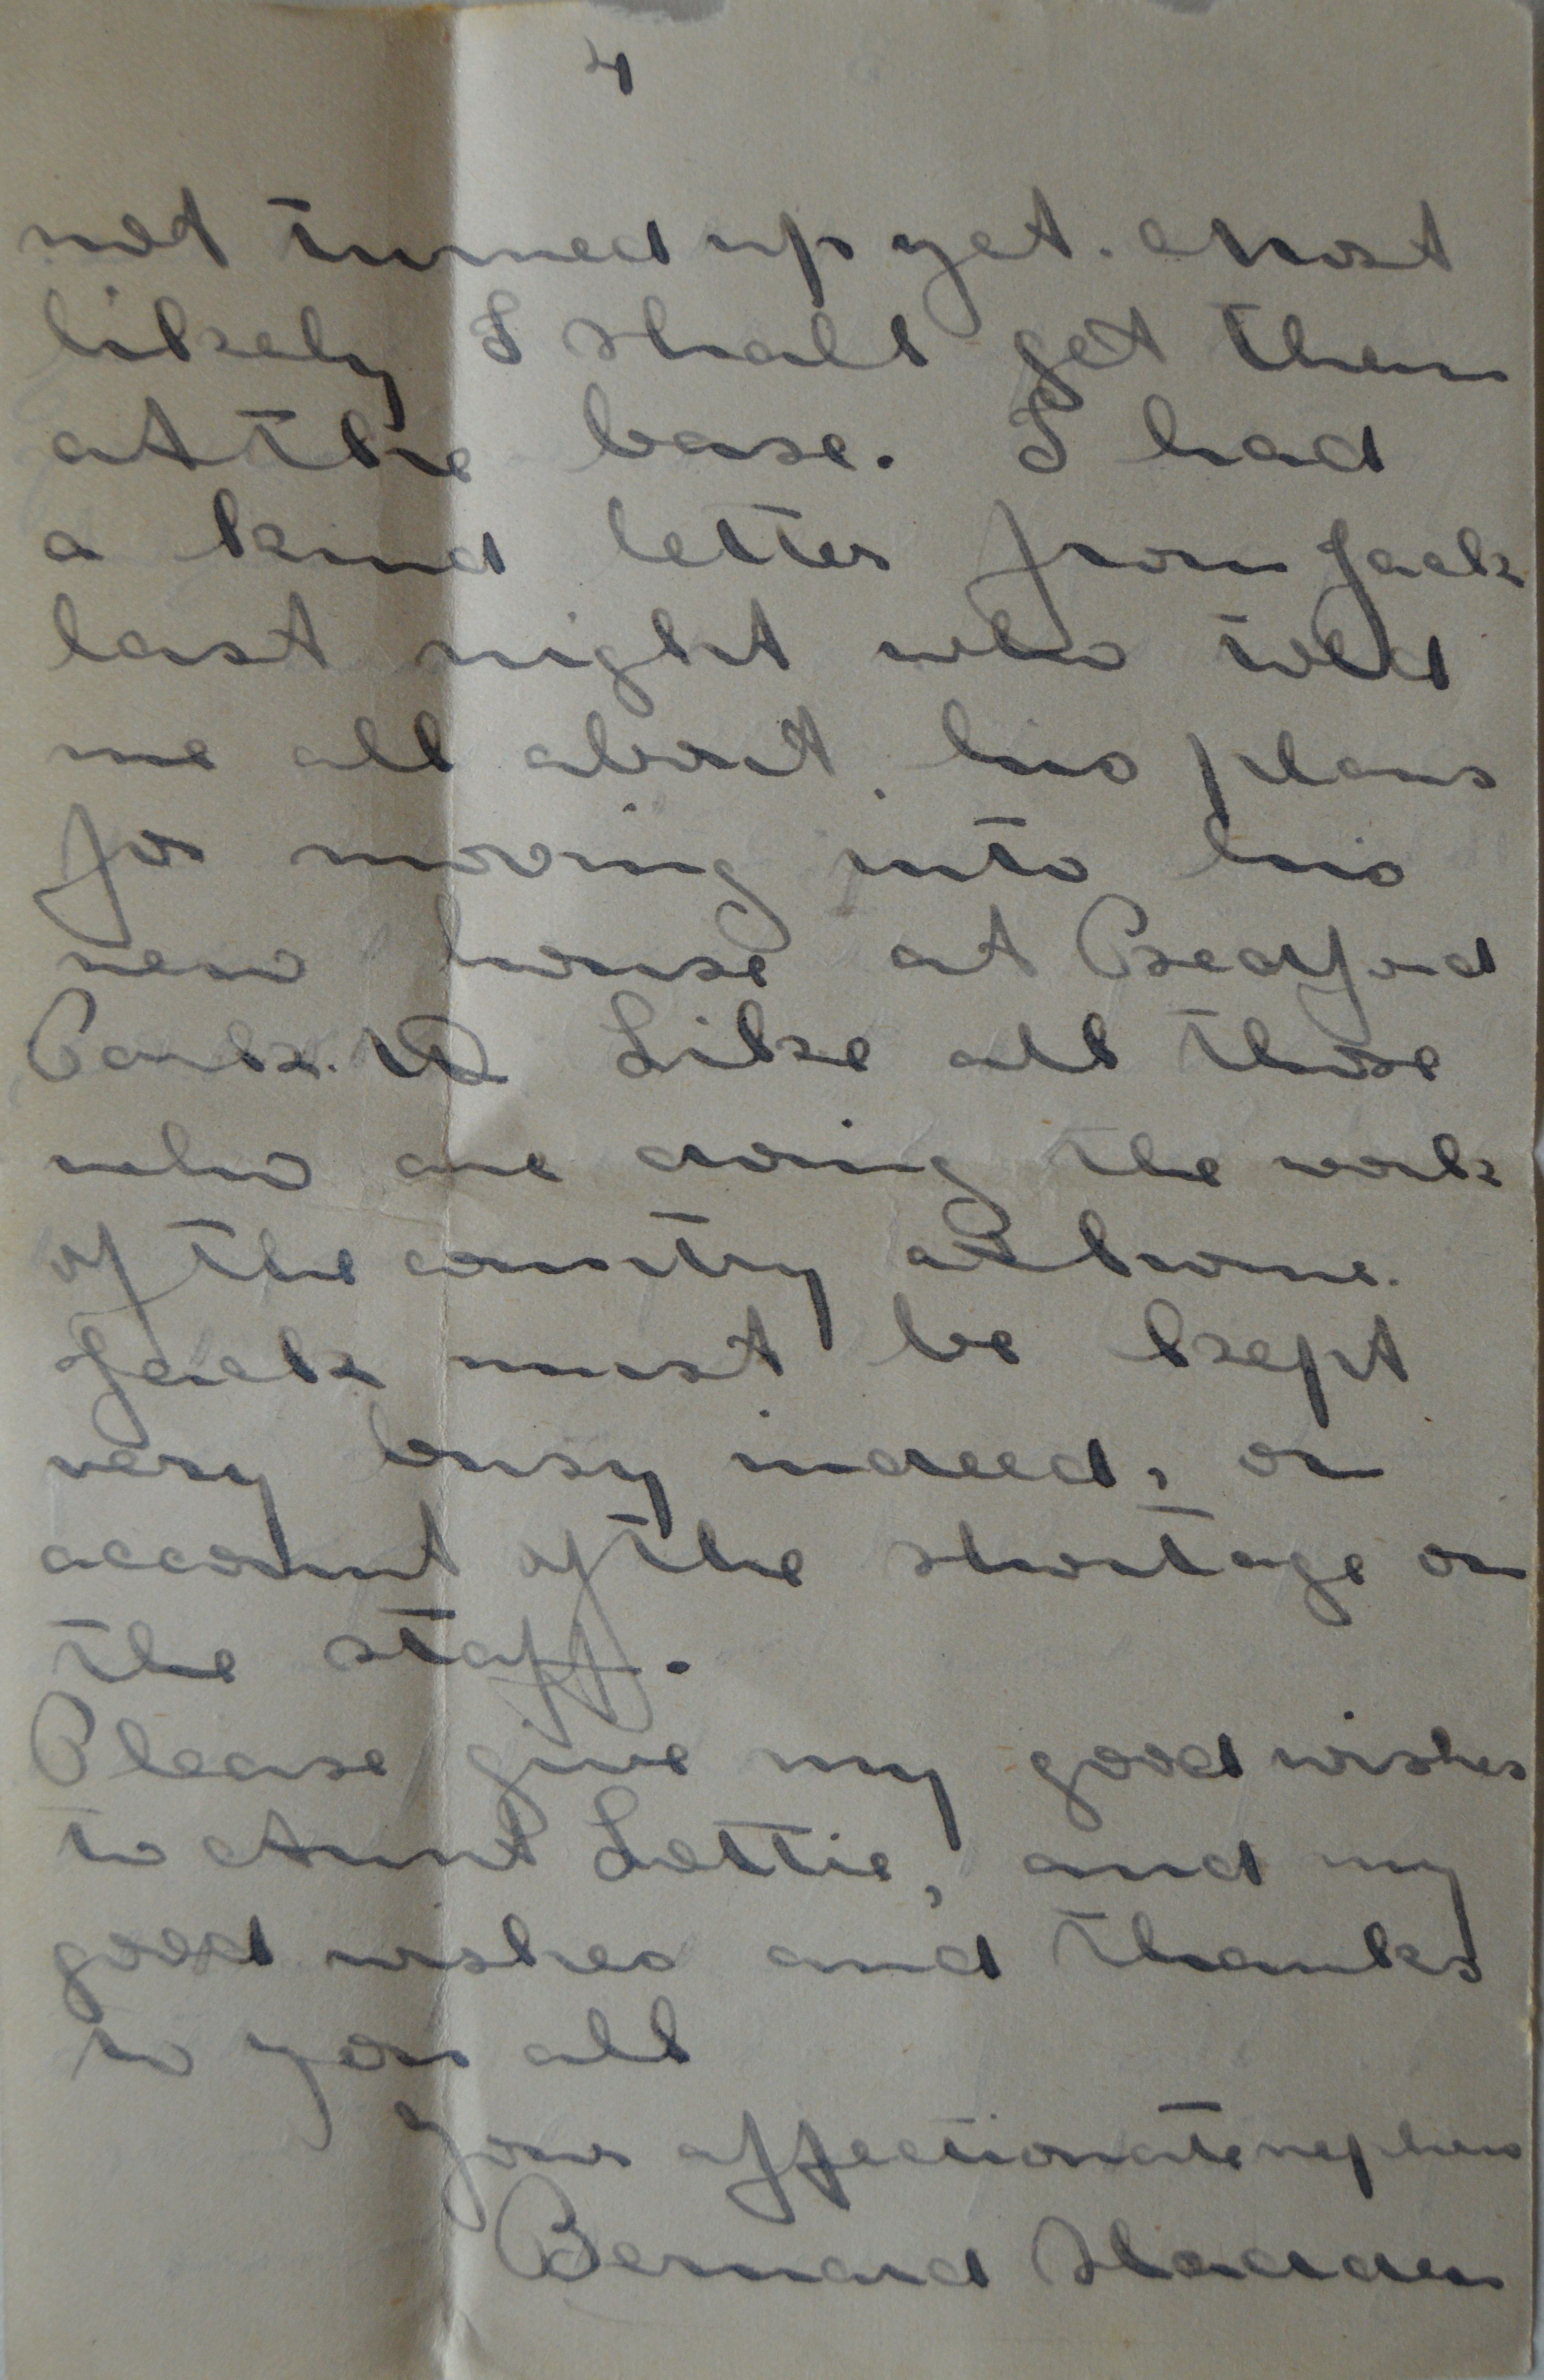 4
not turned up yet. Most
likely I shall get them
at the base. I had
a kind letter from Jack
last night who told
me all about his plans
for moving into his
new house at Bedford
Park. W. Like all those
who are doing the work
of the country at home.
Jack must be kept
very busy indeed, on
account of the shortage on
the staff.
Please give my good wishes
to Aunt Lottie, and my
good wishes and thanks
to you all
Your affectionate nephew
Bernard